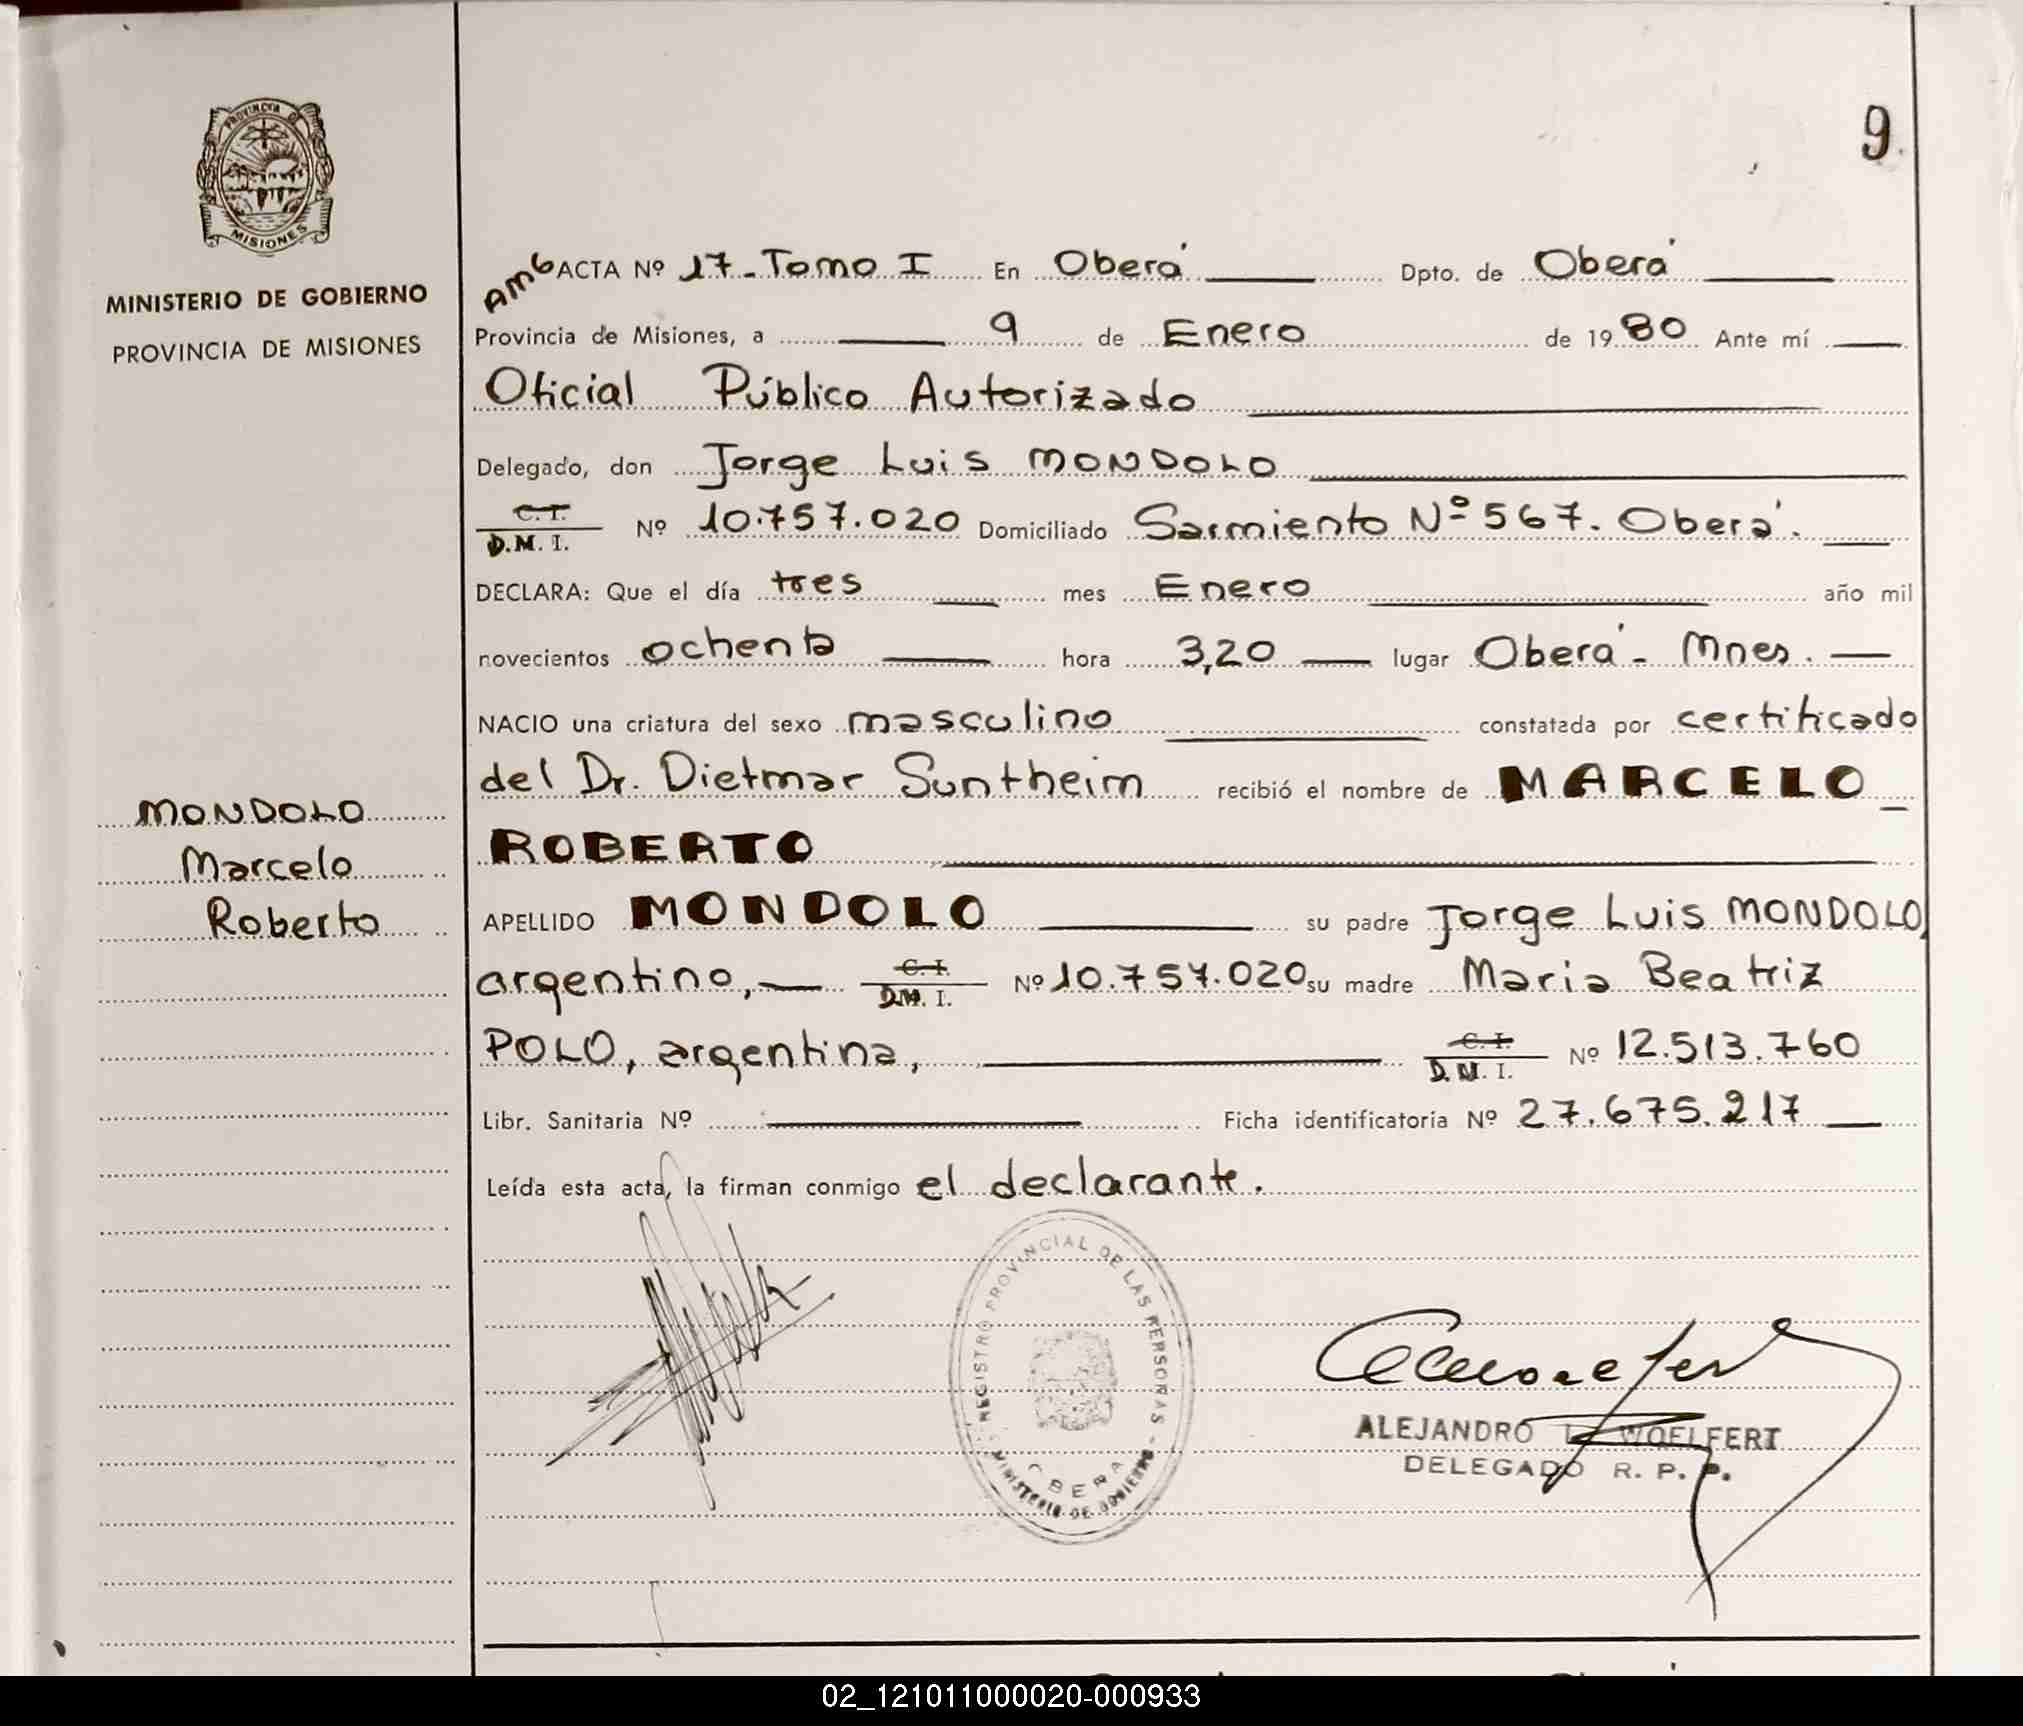 PROVINCIA DE
MISIONES
MINISTERIO DE GOBIERNO
PROVINCIA DE MISIONES
9
AMB ACTA Nº 17 - Tomo I En Oberá Dpto. de Oberá
Provincia de Misiones, a 9 de Enero de 1980 Ante mí
Oficial Público Autorizado
Delegado, don Jorge Luis MONDOLO
C. I.
D.M. I. Nº 10.757.020 Domiciliado Sarmiento Nº 567. Oberá.
DECLARA: Que el día tres mes Enero año mil
novecientos ochenta hora 3,20 lugar Oberá - Mnes.
NACIO una criatura del sexo masculino constatada por certificado
del Dr. Dietmar Suntheim recibió el nombre de MARCELO
ROBERTO
MONDOLO
Marcelo
Roberto
APELLIDO MONDOLO su padre Jorge Luis MONDOLO,
argentino, C. I.
D.M. I. Nº 10.757.020 su madre Maria Beatriz
POLO, argentina, C. I.
D. M. I. Nº 12.513.760
Libr. Sanitaria Nº Ficha identificatoria Nº 27.675.217
Leída esta acta, la firman conmigo el declarante.
REGISTRO PROVINCIAL DE LAS PERSONAS
OBERA
MINISTERIO DE GOBIERNO
ALEJANDRO WOELFERT
DELEGADO R. P. P.
02_121011000020-000933